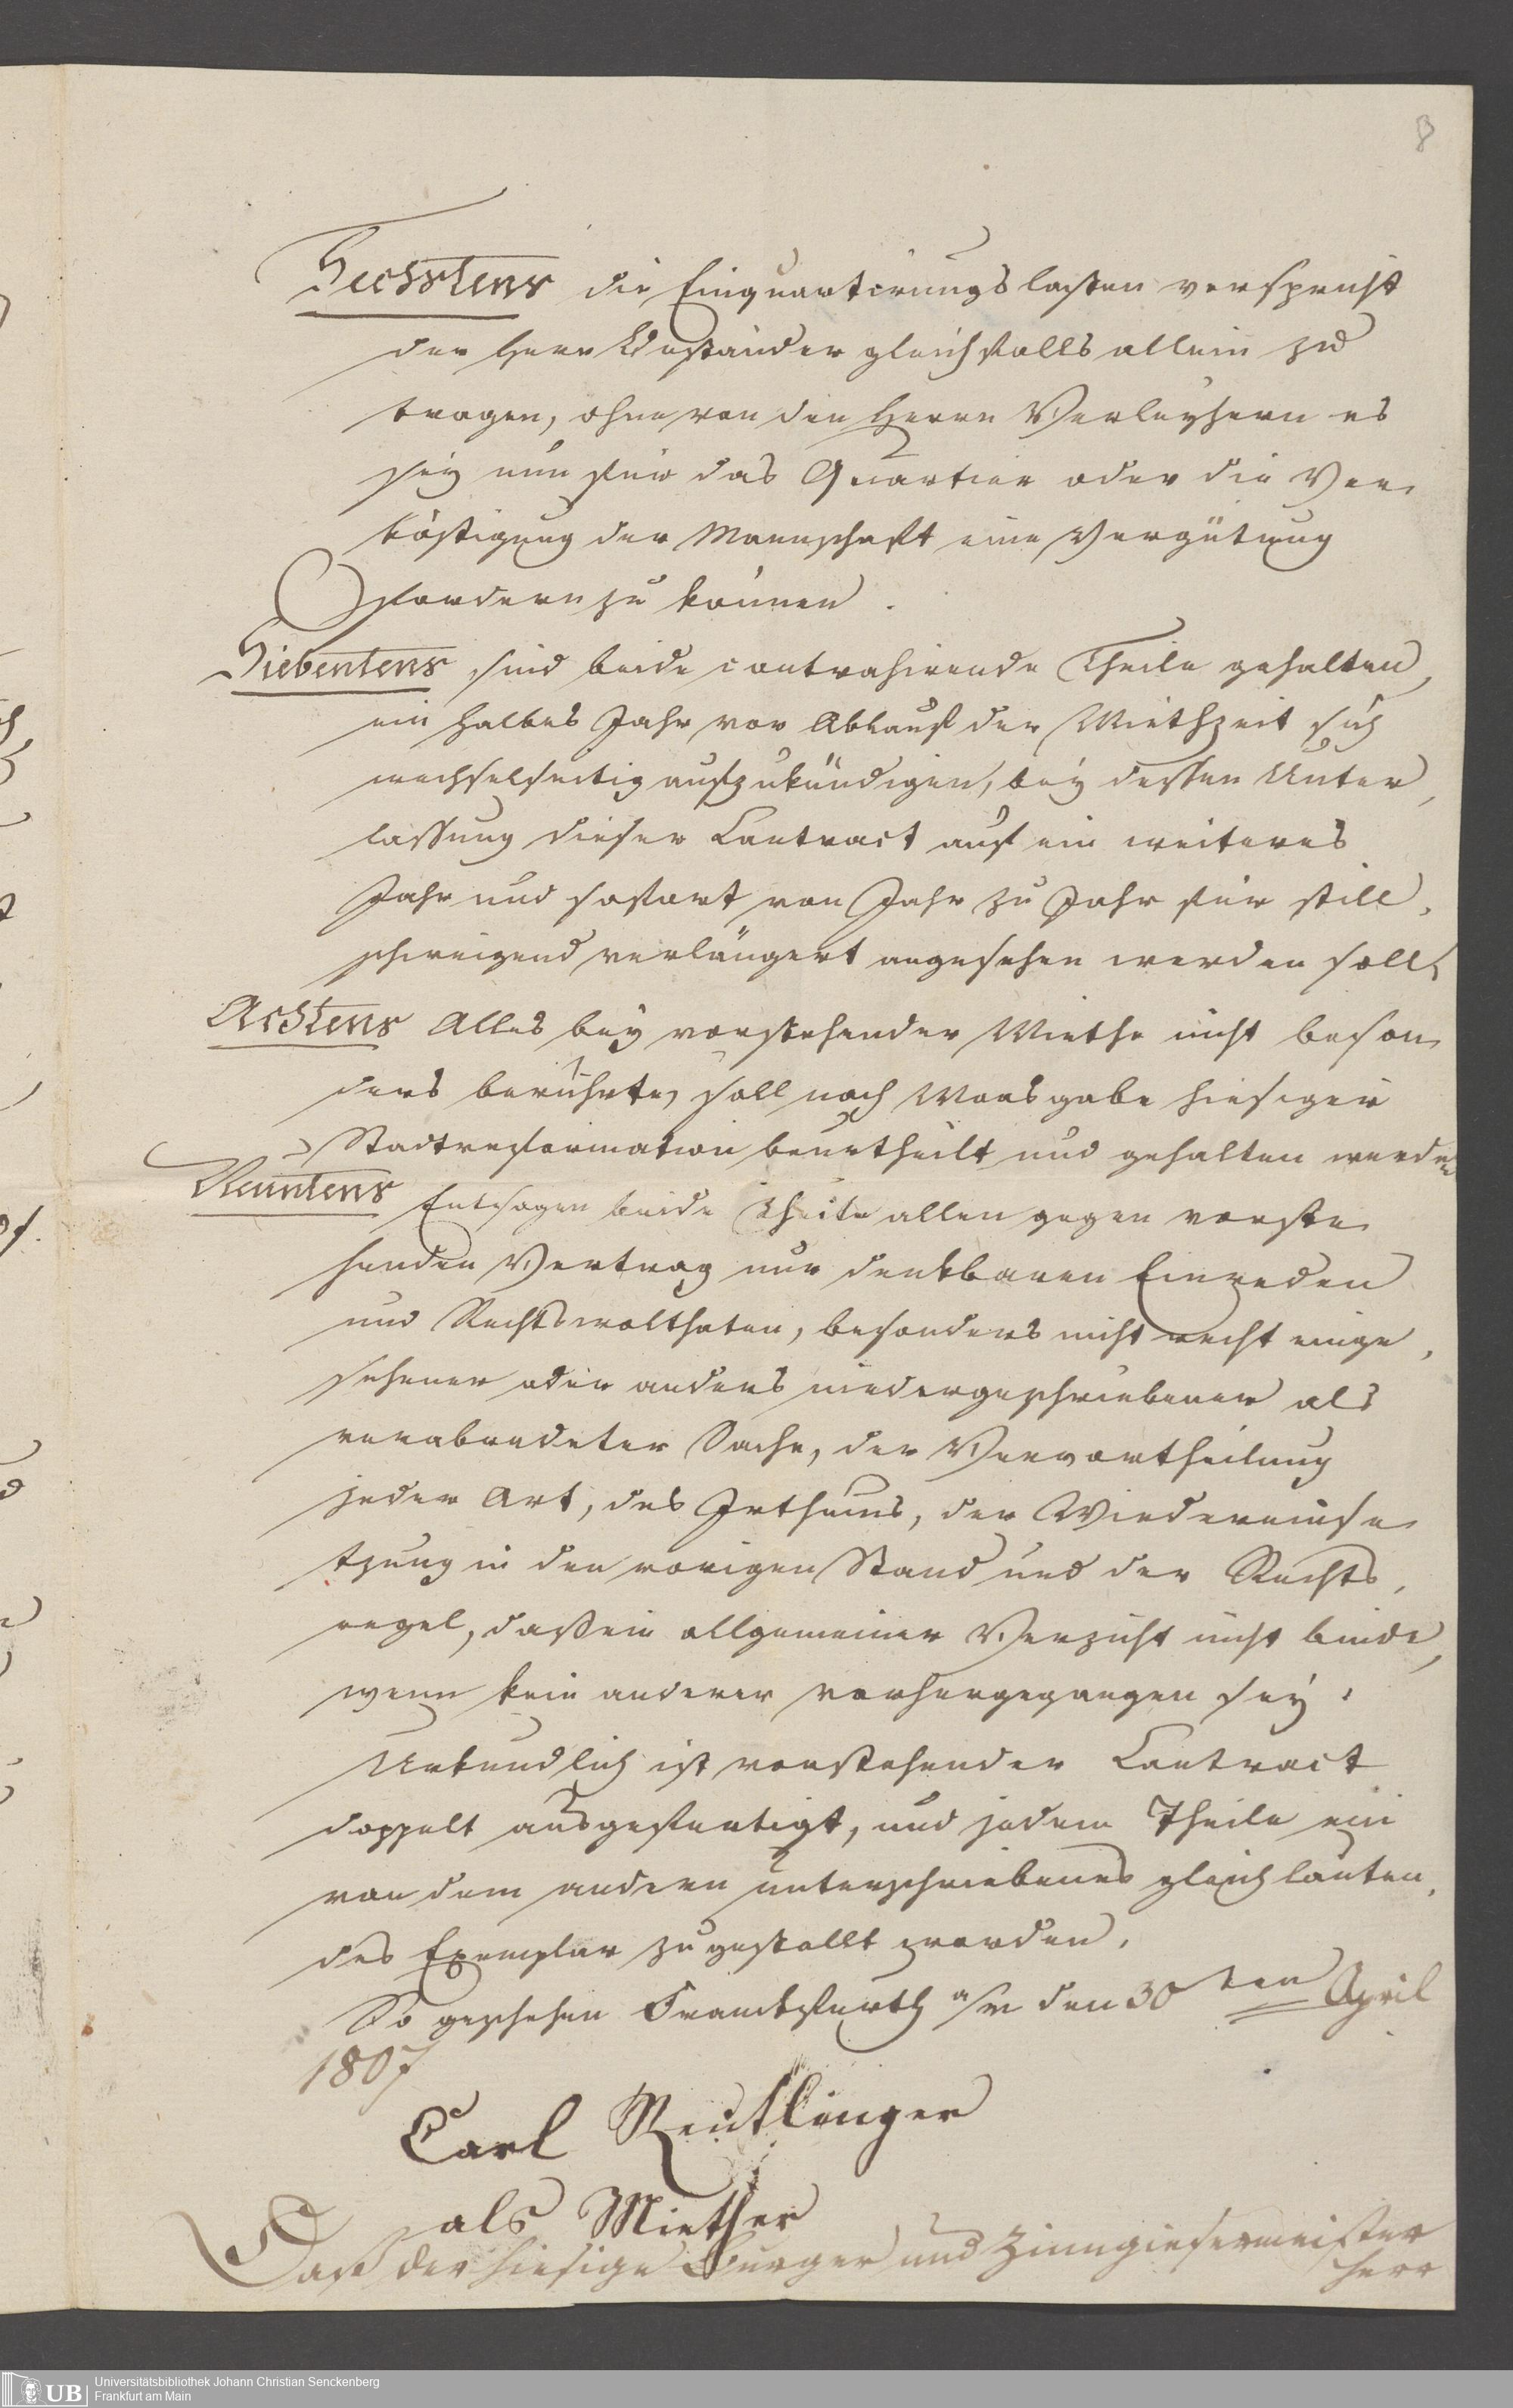 8
Sechstens die Einquartirungslasten verspricht
der Herr Beständer gleichfalls allein zu
tragen, ohne von den Herrn Verleyhern es
sey nun für das Quartier oder die Ver,
köstigung der Mannschaft eine Vergütung
fordern zu können.
Siebentens sind beide contrahirende Theile gehalten,
ein halbes Jahr vor Ablauf der Miethzeit sich
wechselseitig aufzukündigen, bey dessen Unter,
lassung dieser Contract auf ein weiteres
Jahr und sofort von Jahr zu Jahr für still,
schweigend verlängert angesehen werden soll.
Achtens Alles bey vorstehender Miethe nicht beson,
ders berührte, soll nach Maasgabe hiesiger
Stadtreformation beurtheilt und gehalten werden
Neuntens Entsagen beide Theile allen gegen vorste,
henden Vertrag nur denkbaren Einreden
und Rechtswolthaten, besonders nicht recht einge,
sehener oder anders niedergeschriebener als
verabredeter Sache, der Vervortheilung
jeder Art, des Irthums, der Wiedereinse,
tzung in den vorigen Stand und der Rechts,
regel, daß ein allgemeiner Verzicht nicht binde,
wenn kein anderer vorhergegangen sey.
Urkundlich ist vorstehender Contract
doppelt ausgefertigt, und jedem Theile ein
von dem andern unterschriebenes gleichlauten,
des Exemplar zugestellt worden.
So geschehen Franckfurth a/m den 30ten April
1807
Carl Reutlinger
als Miether
Daß der hiesige Burger und Zinngiesermeister
Herr
Universitätsbibliothek Johann Christian Senckenberg
Frankfurt am Main
UB